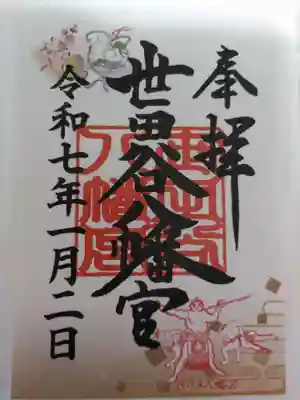 奉拝
世田谷八幡宮
令和七年一月二日